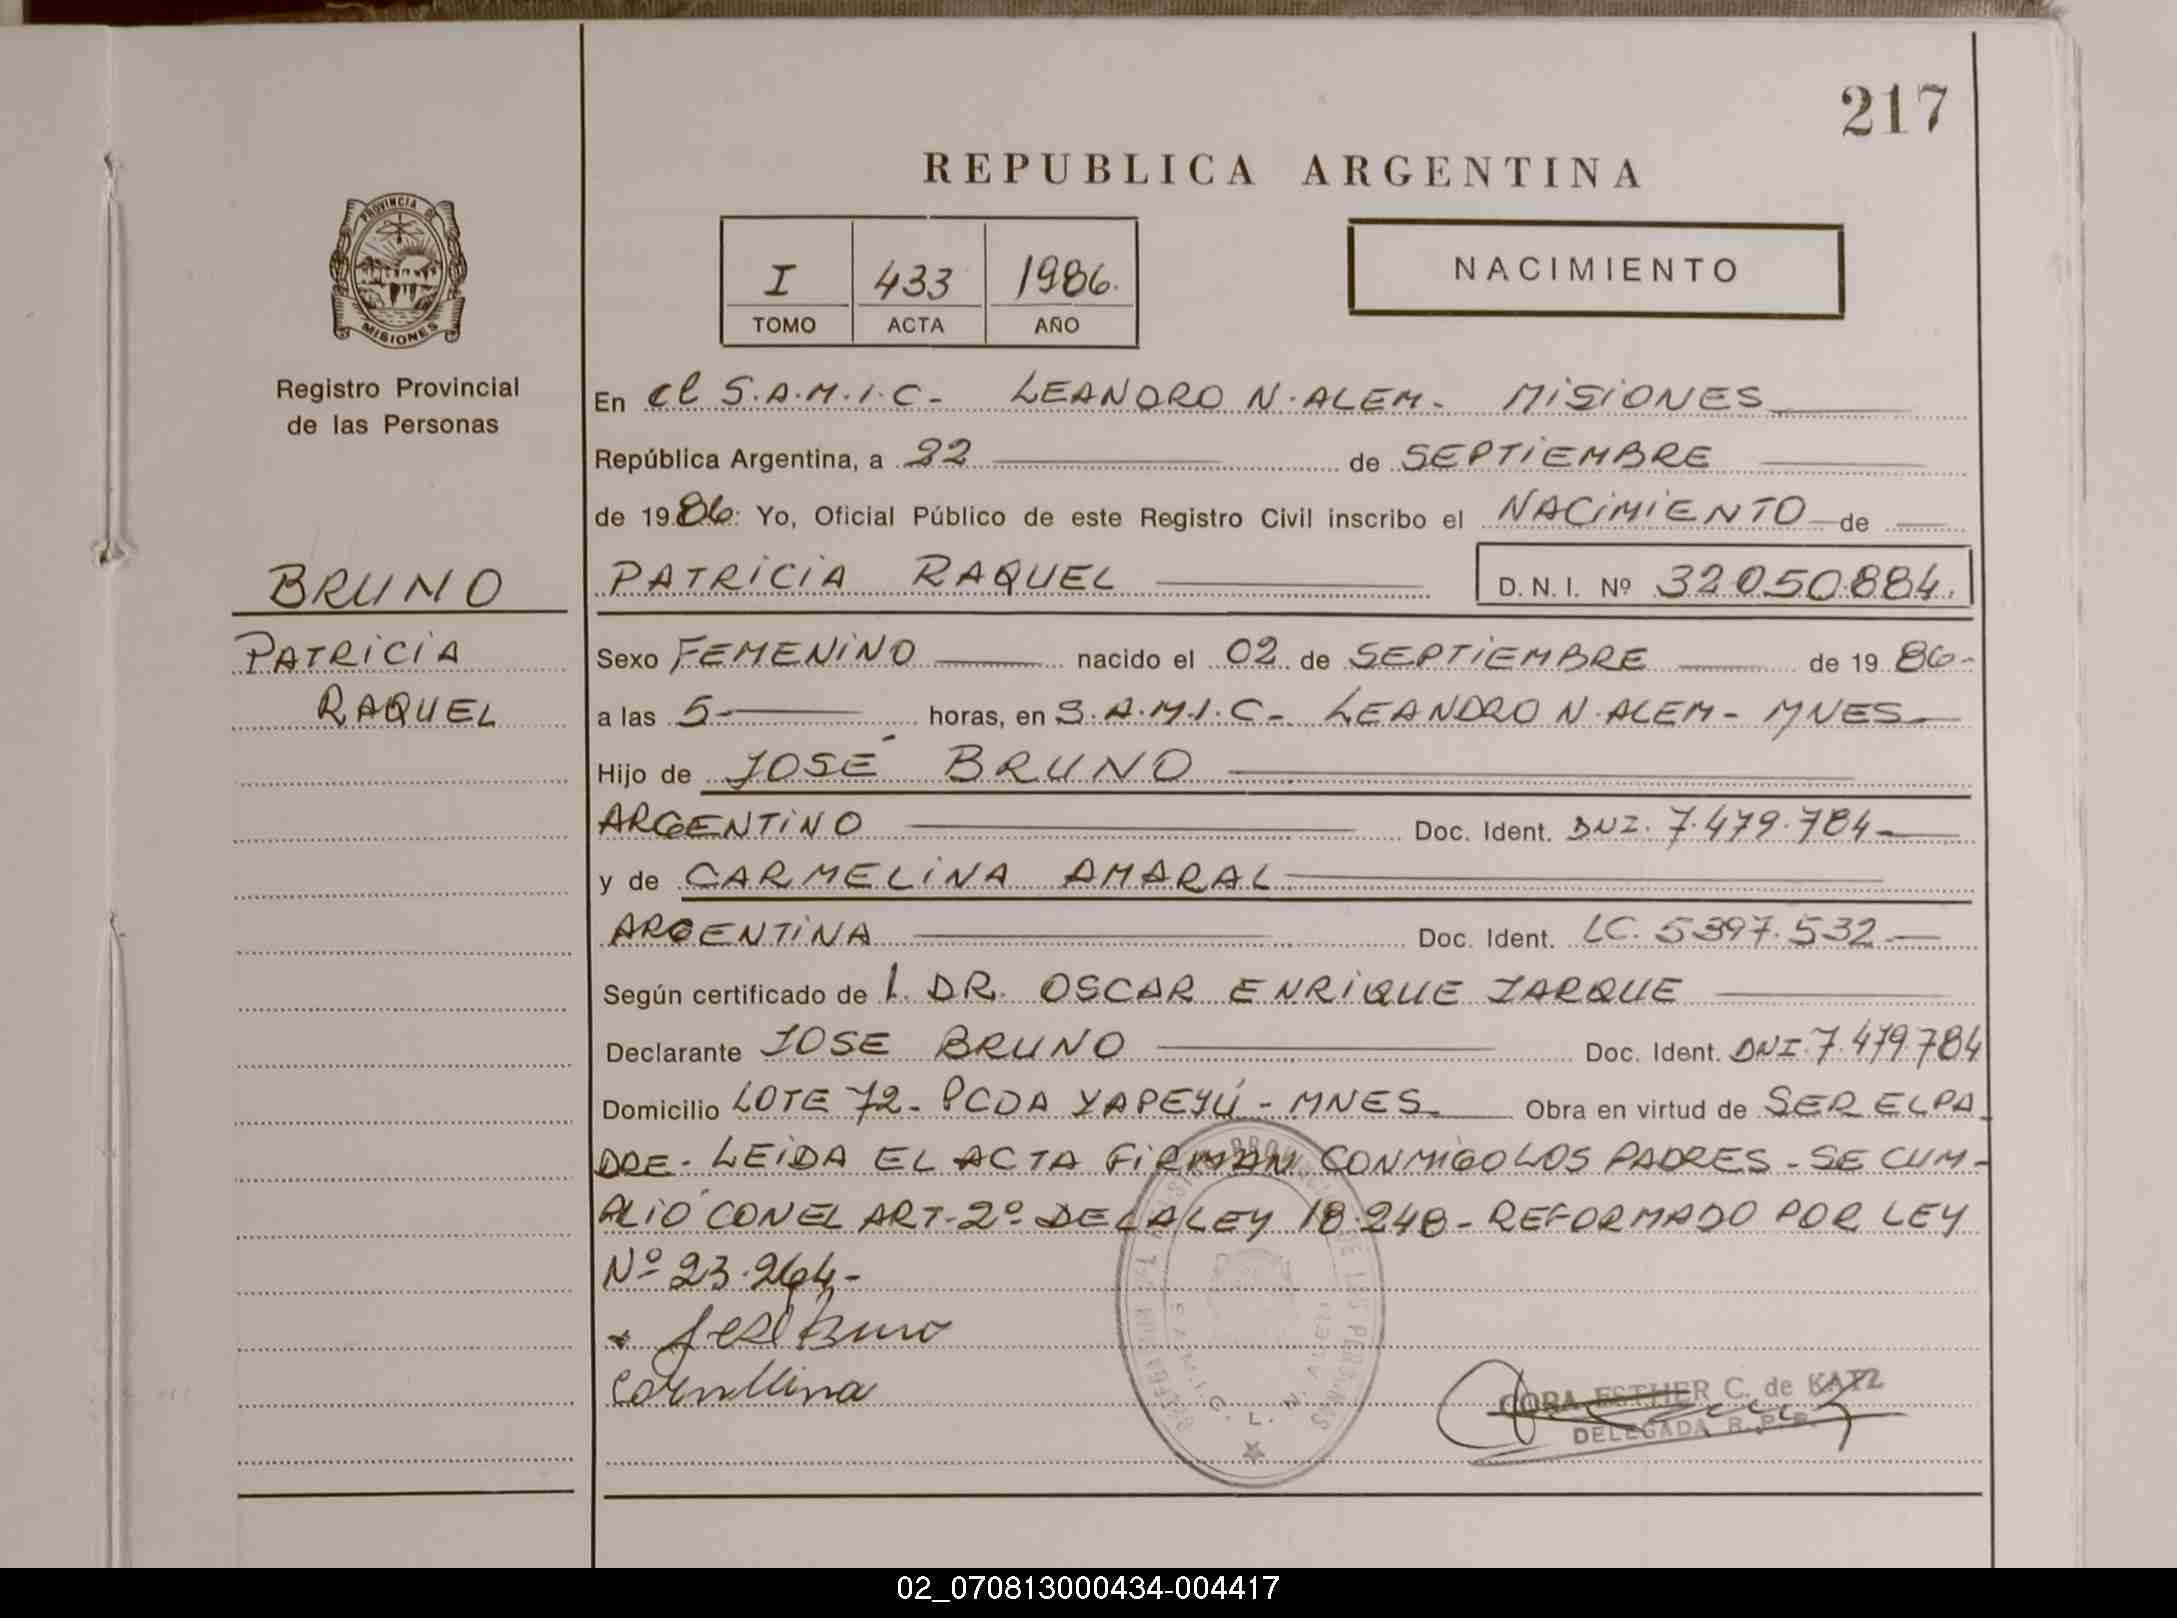 217
REPUBLICA ARGENTINA
PROVINCIA DE
MISIONES
I 433 1986.
TOMO ACTA AÑO
NACIMIENTO
Registro Provincial
de las Personas
En el S.A.M.I.C- LEANDRO N. ALEM- MISIONES
República Argentina, a 22 de SEPTIEMBRE
de 1986: Yo, Oficial Público de este Registro Civil inscribo el NACIMIENTO de
BRUNO
PATRICIA RAQUEL D.N.I. Nº 32.050.884.
PATRICIA
RAQUEL
Sexo FEMENINO nacido el 02 de SEPTIEMBRE de 1986-
a las 5- horas, en S.A.M.I.C- LEANDRO N. ALEM- MNES-
Hijo de JOSÉ BRUNO
ARGENTINO Doc. Ident. DNI. 7.479.784-
y de CARMELINA AMARAL
ARGENTINA Doc. Ident. LC. 5397.532-
Según certificado de l. DR. OSCAR ENRIQUE JARQUE
Declarante JOSE BRUNO Doc. Ident. DNI.7.479.784
Domicilio LOTE 72- PCDA YAPEYÚ- MNES- Obra en virtud de SER EL PA-
DRE- LEIDA EL ACTA FIRMAN CONMIGO LOS PADRES- SE CUM-
PLIÓ CON EL ART-2º DE LA LEY 18.248- REFORMADO POR LEY
Nº 23.264-
José Bruno
CORA ESTHER C. de KATZ
DELEGADA R.P.P.
02_070813000434-004417